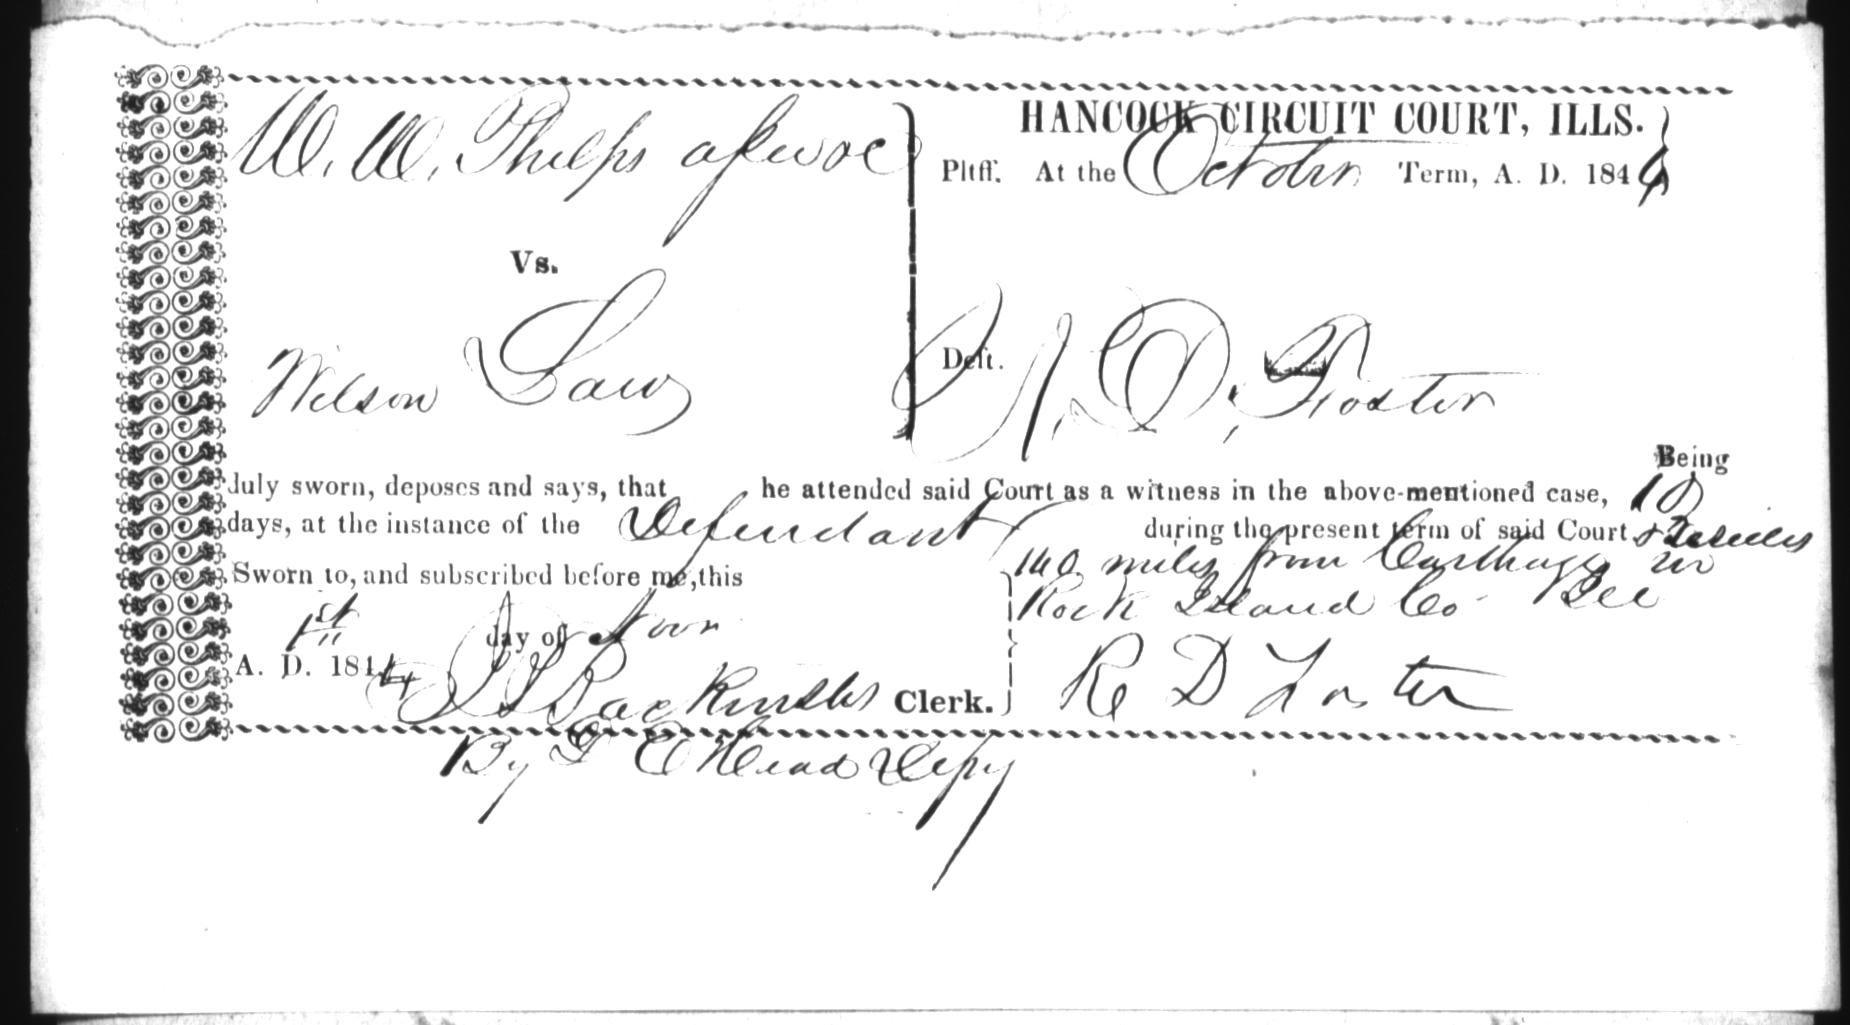 W. W. Phelps
HANCOCK CIRCUIT COURT, ILLS.
Pltff. At the October Term, A. D. 1844
Vs.
Wilson Law
Deft. R. D. Foster
Being
duly sworn, deposes and says, that he attended said Court as a witness in the above-mentioned case, 10
days, at the instance of the Defendant during the present term of said Court & Resides
140 miles from Carthage in
Rock Island Co
Sworn to, and subscribed before me, this
1st day of Nov
A. D. 1844
J B Backenstos Clerk.
R D Foster
By Head Depy